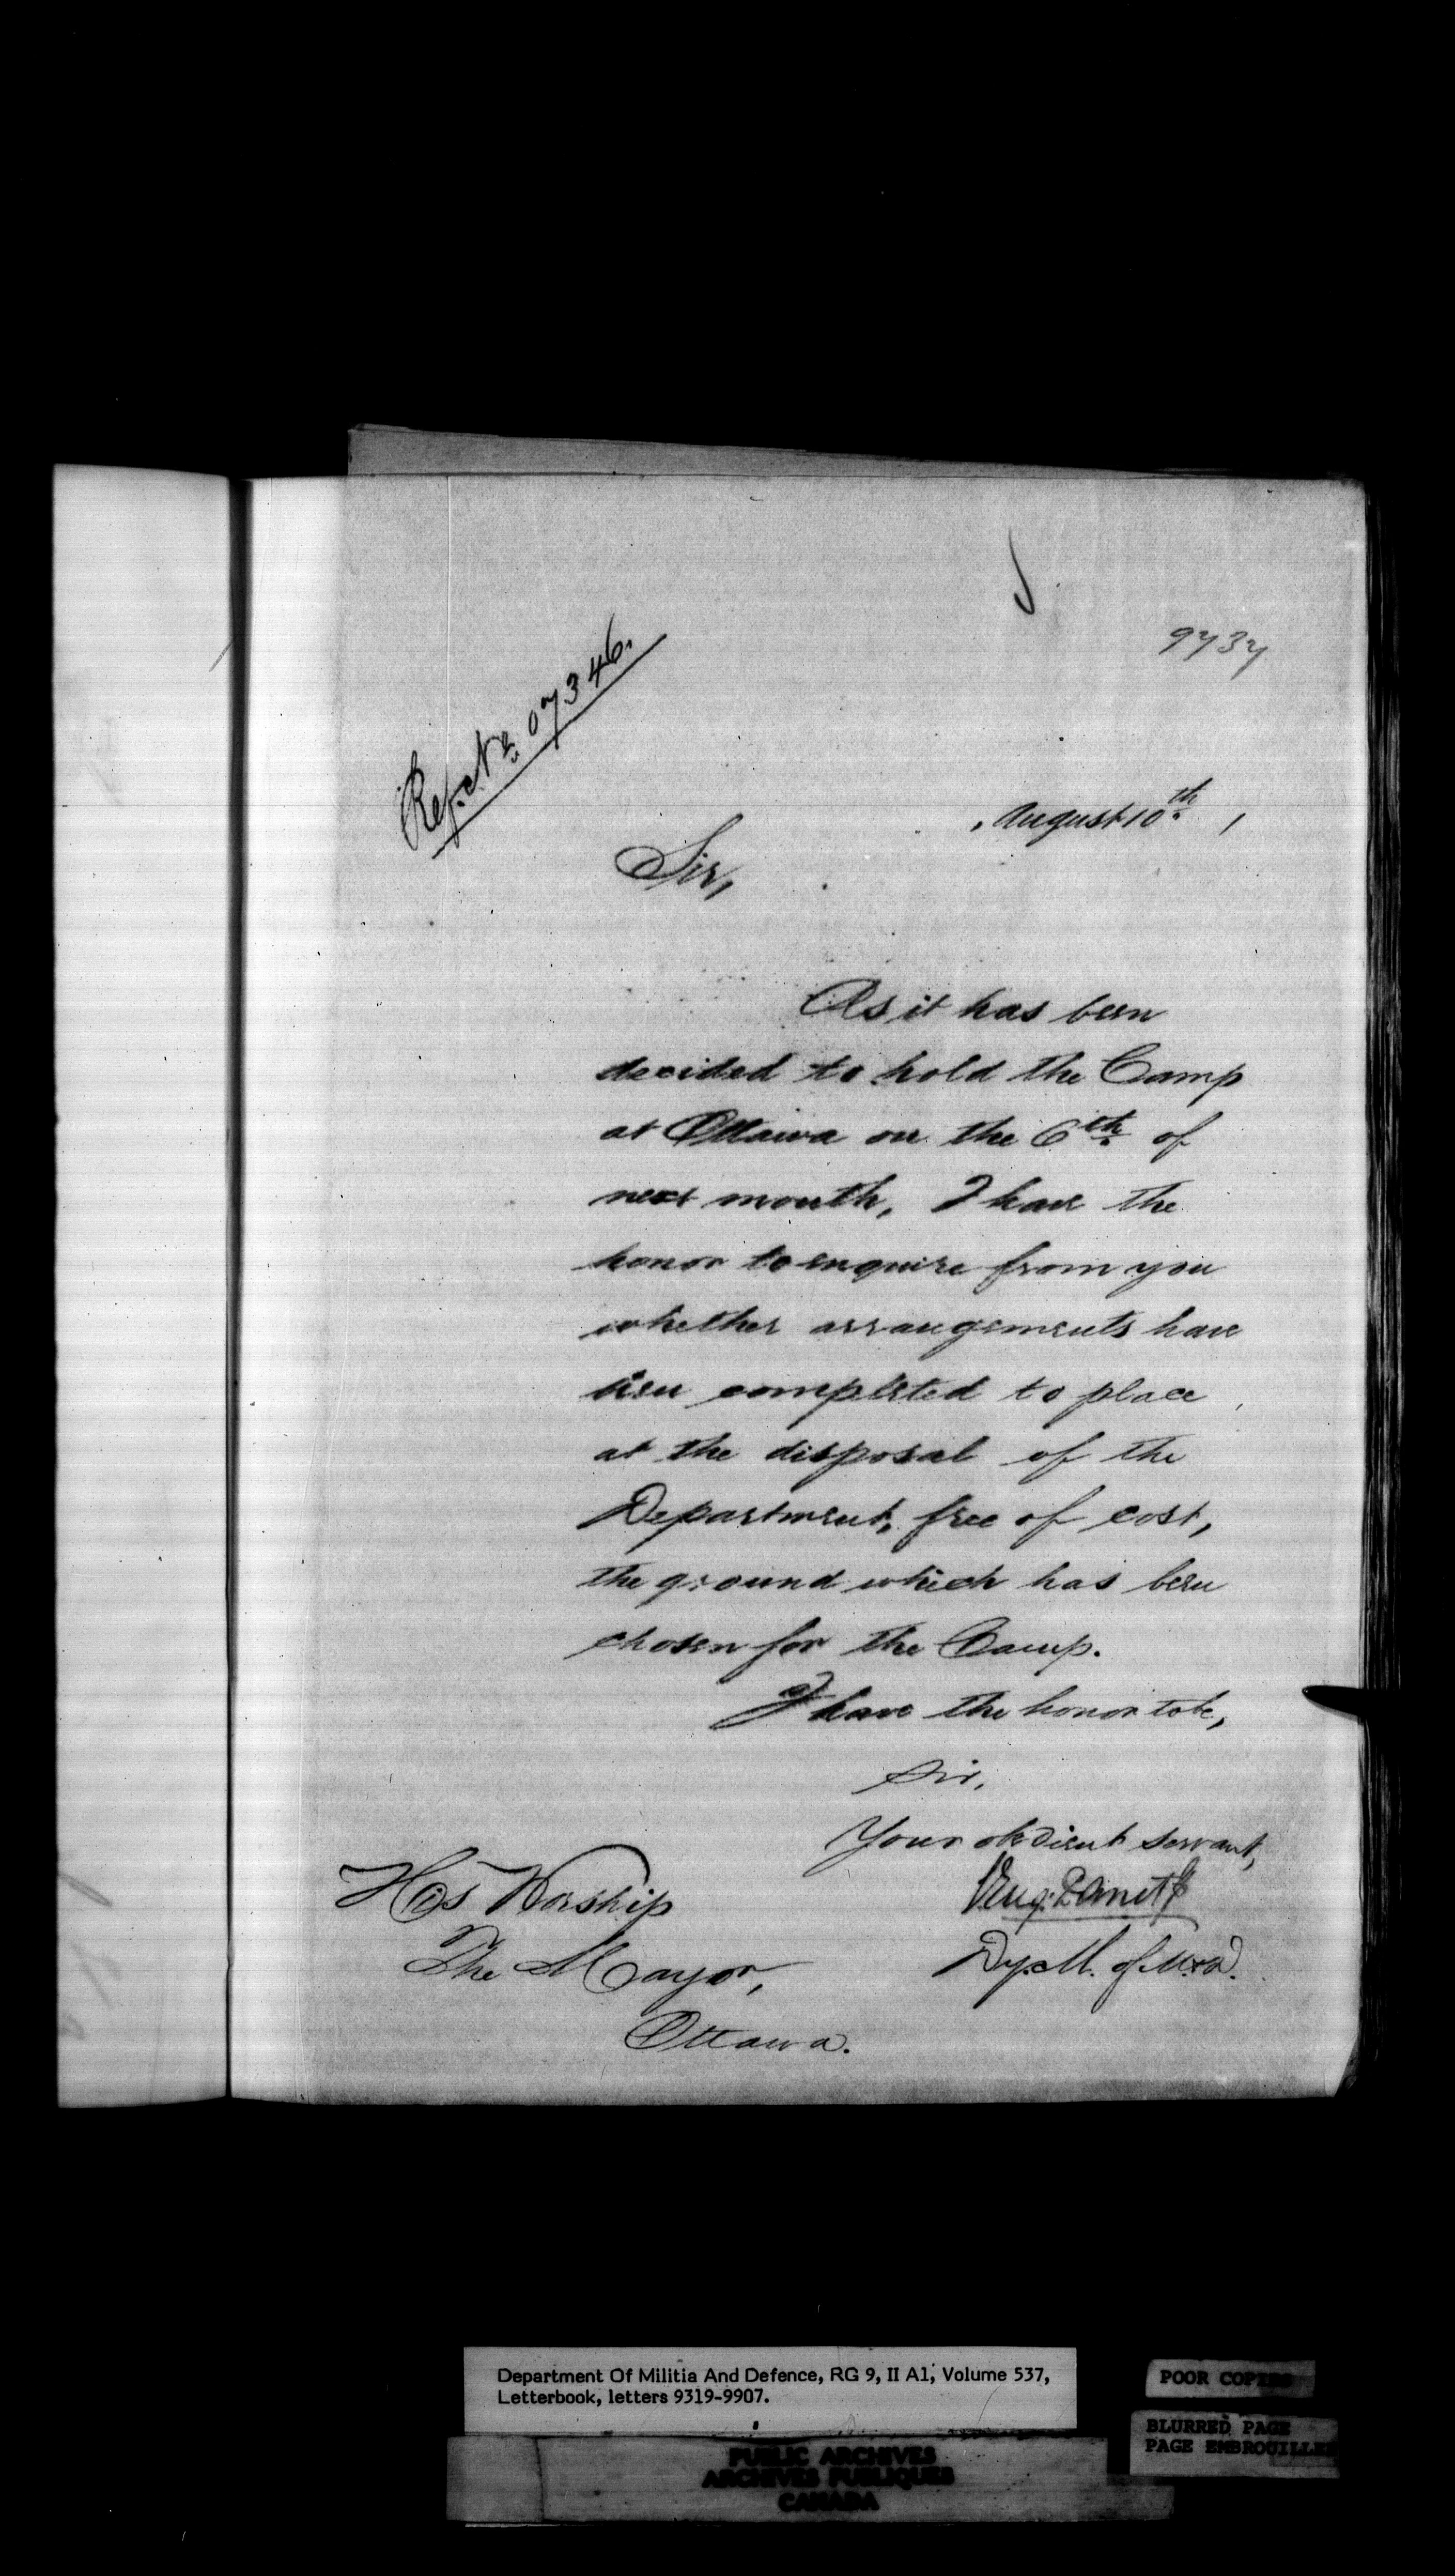 9737
Ref. No. 07346.
August 10th
Sir,
As it has been
decided to hold the Camp
at Ottawa on the 6th of
next month, I have the
honor to enquire from you
whether arrangements have
been completed to place
at the disposal of the
Department, free of cost,
the ground which has been
chosen for the Camp.
I have the honor to be,
Sir,
Your obedient servant,
Eug. Panet
Dy. M. of M. & D.
His Worship
The Mayor,
Ottawa.
Department Of Militia And Defence, RG 9, II A1, Volume 537,
Letterbook, letters 9319-9907.
POOR COPIES
BLURRED PAGE
PAGE EMBROUILLEE
PUBLIC ARCHIVES
ARCHIVES PUBLIQUES
CANADA